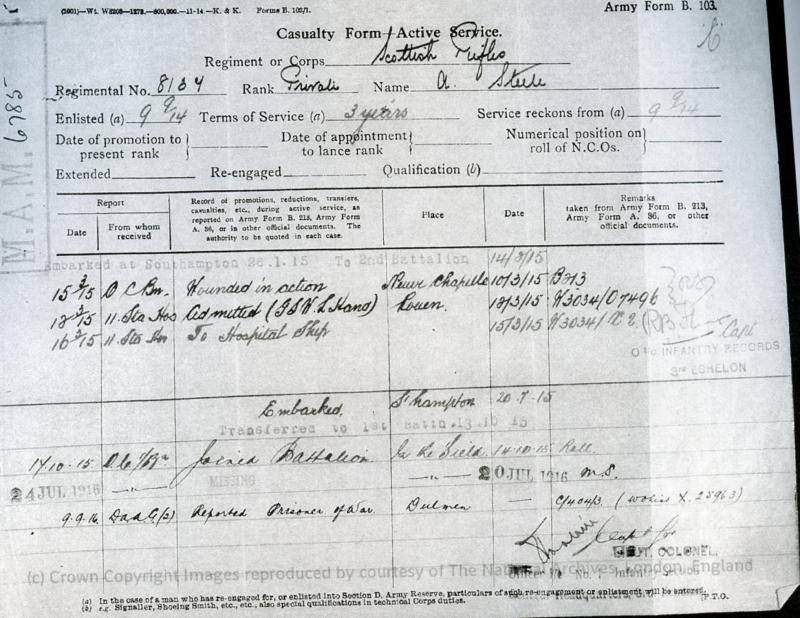 (2001)—Wt. W5205—1273.—800,000.—11-14.—K. & K. Forms B. 103/1.
Army Form B. 103.
Casualty Form—Active Service.
Regiment or Corps Scottish Rifles
Regimental No. 8134 Rank Private Name A. Steele
Enlisted (a) 9 9/14 Terms of Service (a) 3 years Service reckons from (a) 9 9/14
Date of promotion to present rank Date of appointment to lance rank Numerical position on roll of N.C.Os.
Extended Re-engaged Qualification (b)
M.A.M. 6785
Report
Date From whom received
Record of promotions, reductions, transfers, casualties, etc., during active service, as reported on Army Form B. 213, Army Form A. 36, or in other official documents. The authority to be quoted in each case.
Place
Date
Remarks taken from Army Form B. 213, Army Form A. 36, or other official documents.
Embarked at Southampton 26.1.15 To 2nd Battalion 14/3/15
15 3/15 O C Bn. Wounded in action Neuve Chapelle 10/3/15 B213
12 3/15 11. Sta Hos Admitted (GSW L Hand) Rouen. 12/3/15 W3034/07496
16 3/15 11. Sta Hos To Hospital Ship 15/3/15 W3034/
Capt
O i/c INFANTRY RECORDS
3RD ECHELON
Embarked. S'hampton 20.7.15
Transferred to 1st Battn. 13 10 15
17.10.15 O.C 1/Bn Joined Battalion In the Field 14.10.15 Roll
24 JUL 1916 —"— MISSING —"— 20 JUL 1916 M.S.
9.9.16 Reported Prisoner of War. Dulmen — C/4043
Capt for
LIEUT. COLONEL,
(c) Crown Copyright Images reproduced by courtesy of The National Archives, London, England
(a) In the case of a man who has re-engaged for, or enlisted into Section D, Army Reserve, particulars of such re-engagement or enlistment will be entered.
(b) e.g. Signaller, Shoeing Smith, etc., etc., also special qualifications in technical Corps duties.
P.T.O.